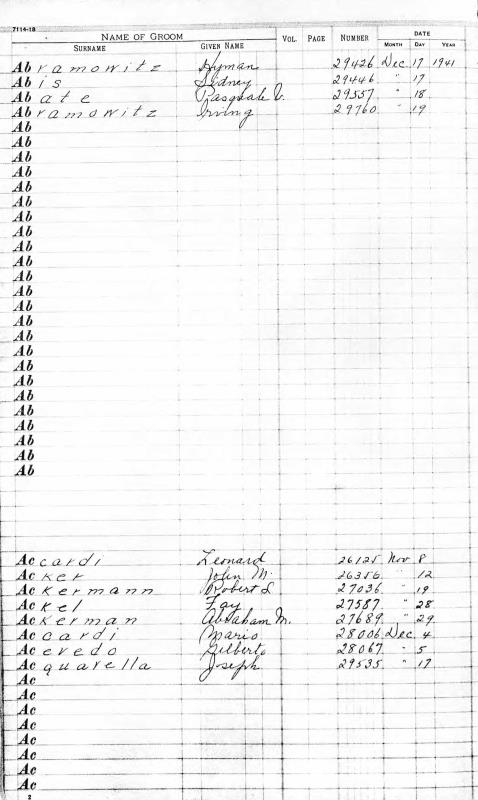 7114-18
NAME OF GROOM VOL. PAGE NUMBER DATE
SURNAME GIVEN NAME MONTH DAY YEAR
Abramowitz Hyman 29426 Dec 17 1941
Abis Sidney 29446 " 17
Abate Pasquale V. 29557 " 18
Abramowitz Irving 29760 " 19
Ab
Ab
Ab
Ab
Ab
Ab
Ab
Ab
Ab
Ab
Ab
Ab
Ab
Ab
Ab
Ab
Ab
Ab
Ab
Ab
Ab
Ab
Ab
Ab
Accardi Leonard 26125 Nov 8
Acker John M. 26356 " 12
Ackermann Robert L 27036 " 19
Ackel Fay 27587 " 28
Ackerman Abraham M. 27689 " 29
Accardi Mario 28006 Dec 4
Acevedo Gilberto 28067 " 5
Acquarella Joseph 29535 " 17
Ac
Ac
Ac
Ac
Ac
Ac
Ac
Ac
2